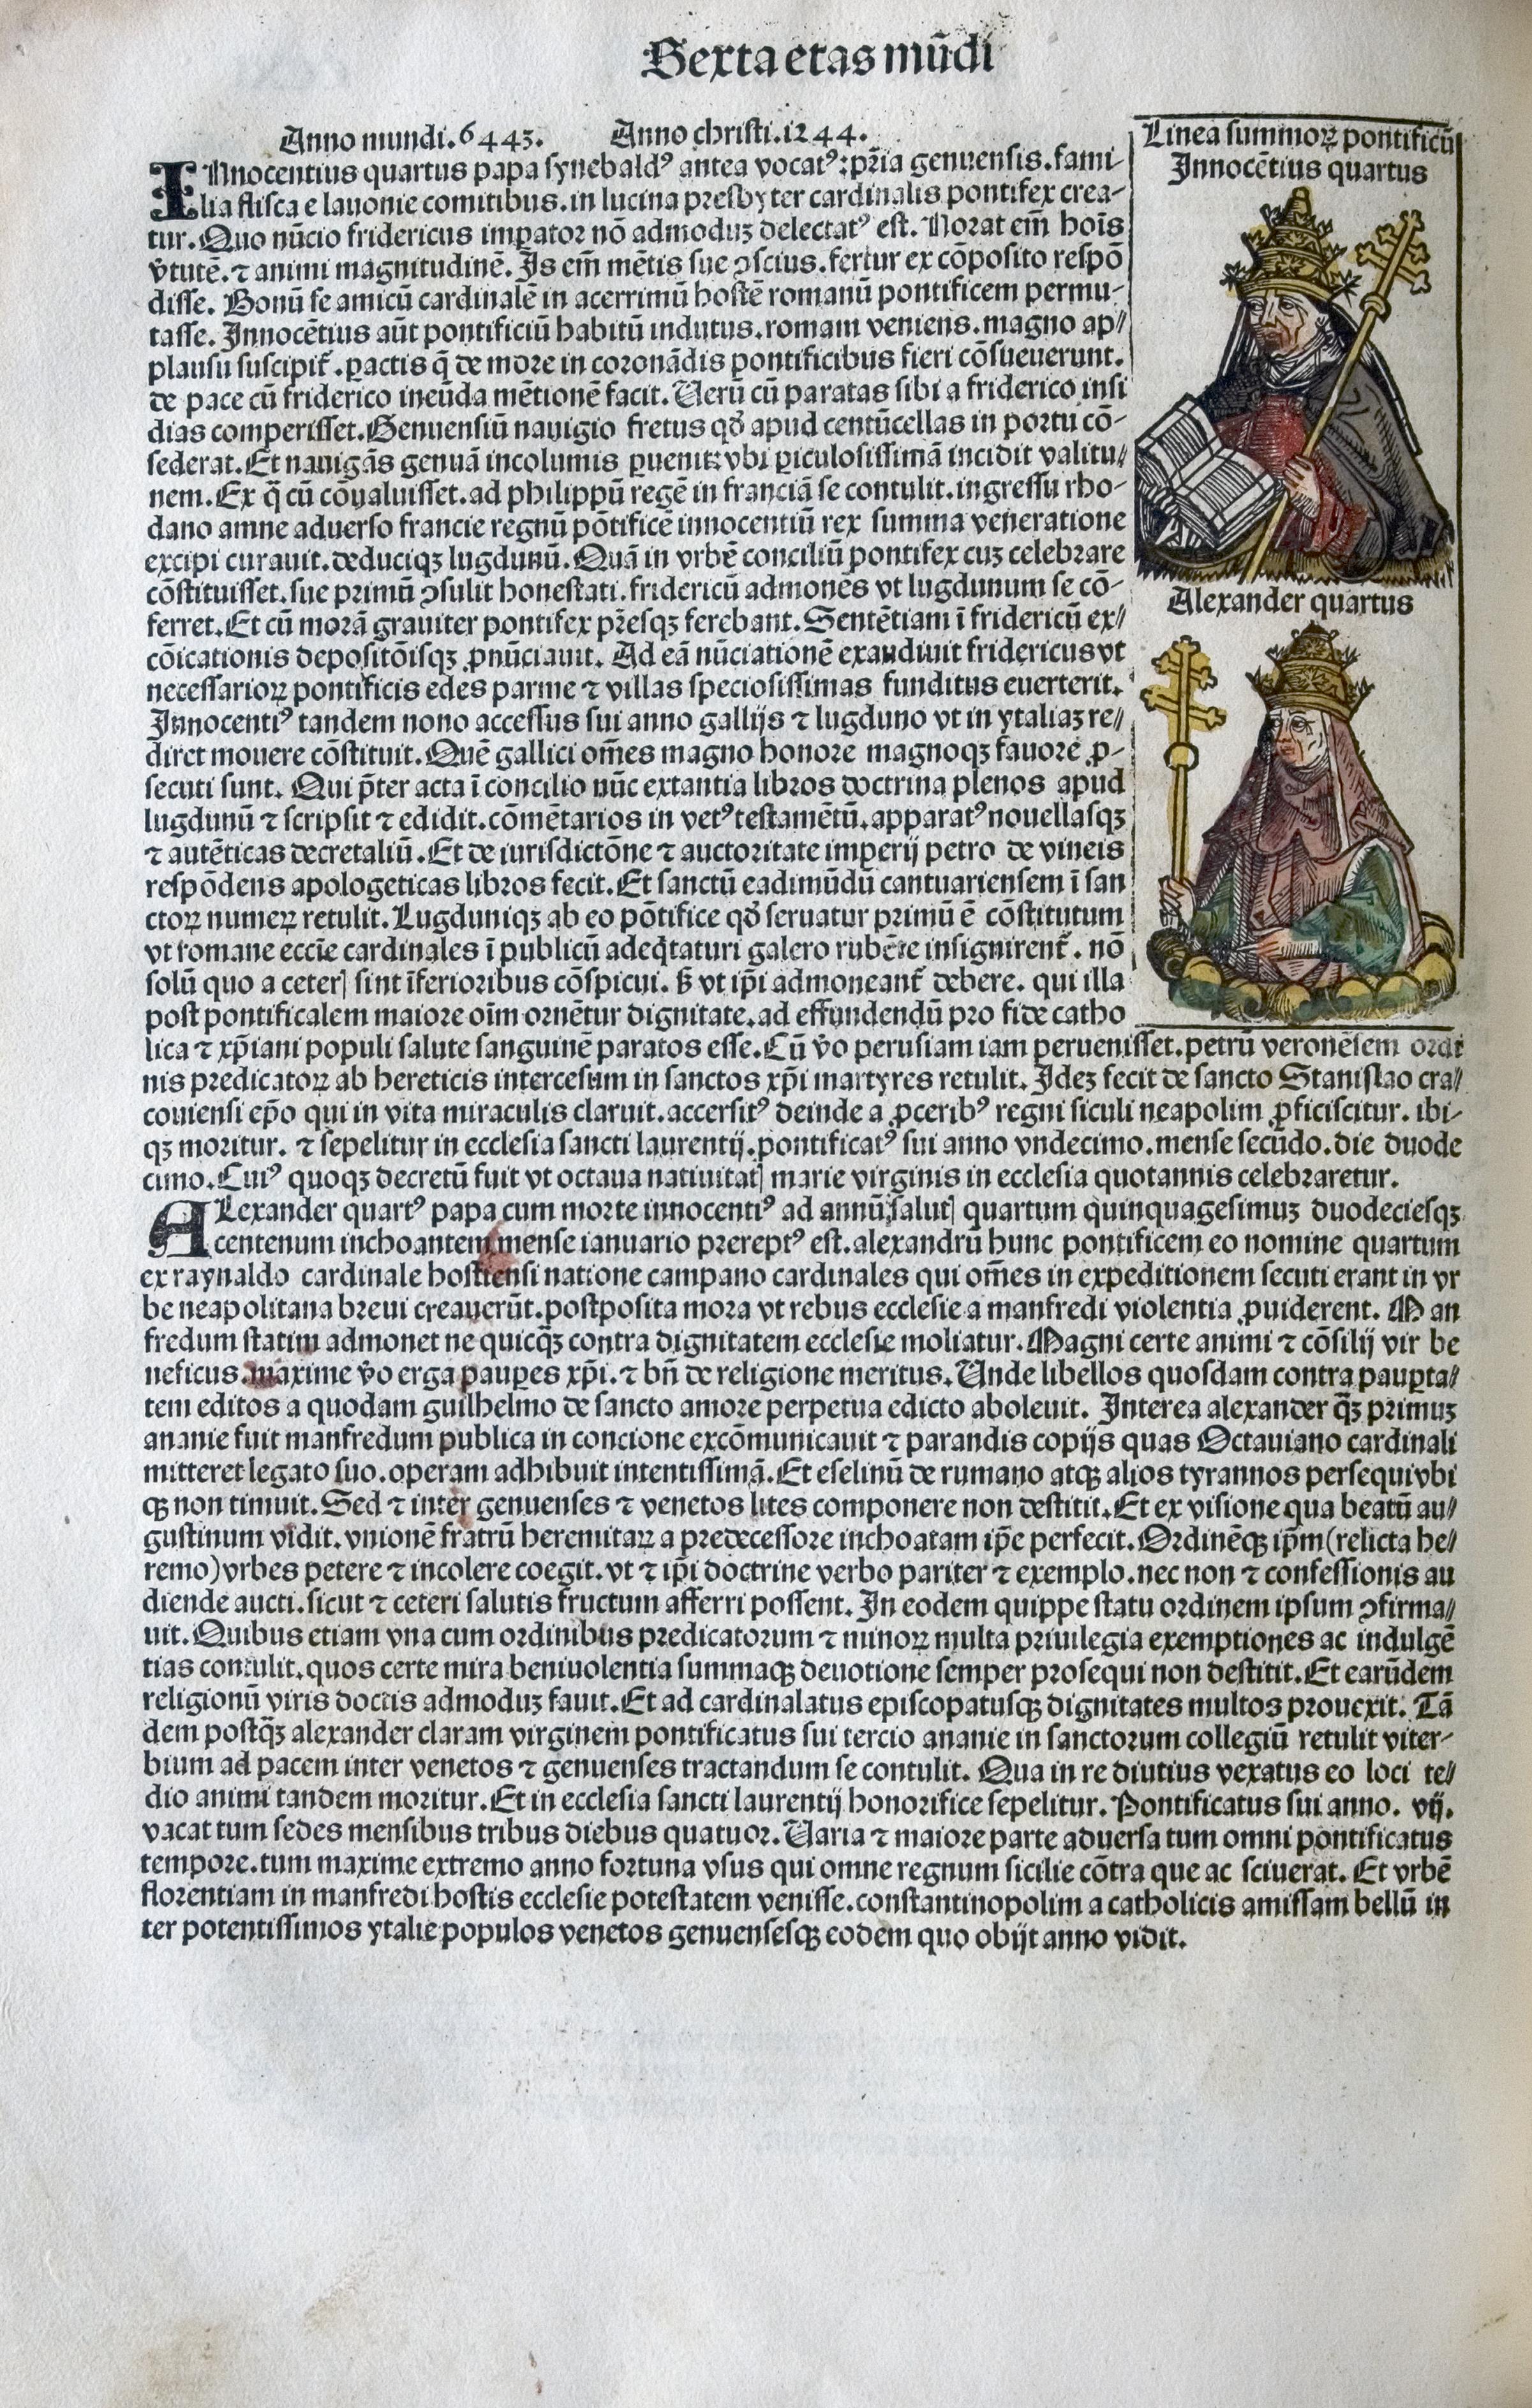 Sexta etas mūdi
Anno mundi.6443. Anno christi.1244.
Linea summoꝝ pontificū
Innocētius quartus
INnocentius quartus papa synebaldꝰ antea vocatꝰ: pr̄ia genuensis.fami-
lia flisca e lauonie comitibus.in lucina presbyter cardinalis pontifex crea-
tur.Quo nūcio fridericus imꝑator nō admoduꝫ delectatꝰ est. Norat em̄ hoīs
v̄tutē.⁊ animi magnitudinē. Is em̄ mētis sue ꝯscius.fertur ex cōposito respō
disse. Bonū se amicū cardinalē in acerrimū hostē romanū pontificem permu-
tasse. Innocētius aūt pontificiū habitū indutus.romam veniens.magno ap-
plausu suscipit̄.ꝑactis q̄ de more in coronādis pontificibus fieri cōsueuerunt.
de pace cū friderico ineūda mētionē facit. Uerū cū paratas sibi a friderico insi
dias comperisset.Genuensiū nauigio fretus qđ apud centūcellas in portu cō-
sederat.Et nauigās genuā incolumis ꝑuenit:vbi ꝑiculosissimā incidit valitu-
nem.Ex q̄ cū cōualuisset.ad philippū regē in franciā se contulit.ingressu rho-
dano amne aduerso francie regnū pōtificē innocentiū rex summa veneratione
excipi curauit.deduciqꝫ lugdunū.Quā in vrbē conciliū pontifex cuꝫ celebrare
cōstituisset.sue primū ꝯsulit honestati.fridericū admonēs vt lugdunum se cō-
ferret.Et cū morā grauiter pontifex pr̄esqꝫ ferebant.Sentētiam ī fridericū ex-
cōicationis depositōisqꝫ ꝓnūciauit. Ad eā nūciationē exaudiuit fridericus vt
necessarioꝝ pontificis edes parme ⁊ villas speciosissimas funditus euerterit.
Innocentiꝰ tandem nono accessus sui anno gallijs ⁊ lugduno vt in ytaliaꝫ re-
diret mouere cōstituit. Quē gallici om̄es magno honore magnoqꝫ fauore ꝓ-
secuti sunt. Qui p̄ter acta ī concilio nūc extantia libros doctrina plenos apud
lugdunū ⁊ scripsit ⁊ edidit.cōmētarios in vetꝰ testamētū.apparatꝰ nouellasqꝫ
⁊ autēticas decretaliū.Et de iurisdictōne ⁊ auctoritate imperij petro de vineis
respōdens apologeticas libros fecit.Et sanctū eadimūdū cantuariensem ī san
ctoꝝ numeꝝ retulit.Lugduniqꝫ ab eo pōtifice qđ seruatur primū ē cōstitutum
vt romane eccīe cardinales ī publicū adeq̄taturi galero rubēte insignirent̄. nō
solū quo a ceteꝭ sint īferioribus cōspicui. ß vt ip̄i admoneant̄ debere. qui illa
post pontificalem maiore oīm ornētur dignitate.ad effundendū pro fide catho
Alexander quartus
lica ⁊ xp̄iani populi salute sanguinē paratos esse.Cū v̄o perusiam iam peruenisset.petrū veronēsem ordi
nis predicatoꝝ ab hereticis intercesum in sanctos xp̄i martyres retulit. Ideꝫ fecit de sancto Stanislao cra-
couiensi ep̄o qui in vita miraculis claruit.accersitꝰ deinde a ꝓceribꝰ regni siculi neapolim ꝓficiscitur. ibi-
qꝫ moritur. ⁊ sepelitur in ecclesia sancti laurentij.pontificatꝰ sui anno vndecimo.mense secūdo.die duode
cimo.Cuiꝰ quoqꝫ decretū fuit vt octaua natiuitatꝭ marie virginis in ecclesia quotannis celebraretur.
ALexander quartꝰ papa cum morte innocentiꝰ ad annū salutꝭ quartum quinquagesimuꝫ duodeciesqꝫ
centenum inchoantem mense ianuario prereptꝰ est.alexandrū hunc pontificem eo nomine quartum
ex raynaldo cardinale hostiensi natione campano cardinales qui om̄es in expeditionem secuti erant in vr
be neapolitana breui creauerūt.postposita mora vt rebus ecclesie a manfredi violentia ꝓuiderent. Man
fredum statim admonet ne quicqꝫ̄ contra dignitatem ecclesie moliatur.Magni certe animi ⁊ cōsilij vir be
neficus.maxime v̄o erga pauꝑes xp̄i.⁊ bn̄ de religione meritus.Unde libellos quosdam contra pauꝑta-
tem editos a quodam guilhelmo de sancto amore perpetua edicto aboleuit. Interea alexander qꝫ̄ primuꝫ
ananie fuit manfredum publica in concione excōmunicauit ⁊ parandis copijs quas Octauiano cardinali
mitteret legato suo.operam adhibuit intentissimā.Et eselinū de rumano atqꝫ alios tyrannos persequi vbi
qꝫ non timuit.Sed ⁊ inter genuenses ⁊ venetos lites componere non destitit.Et ex visione qua beatū au-
gustinum vidit.vnionē fratrū heremitaꝝ a predecessore inchoatam ip̄e perfecit.Ordinēqꝫ ip̄m(relicta he-
remo)vrbes petere ⁊ incolere coegit.vt ⁊ ip̄i doctrine verbo pariter ⁊ exemplo.nec non ⁊ confessionis au
diende aucti.sicut ⁊ ceteri salutis fructum afferri possent. In eodem quippe statu ordinem ipsum ꝯfirma-
uit.Quibus etiam vna cum ordinibus predicatorum ⁊ minoꝝ multa priuilegia exemptiones ac indulgē
tias contulit.quos certe mira beniuolentia summaqꝫ deuotione semper prosequi non destitit.Et earūdem
religionū viris doctis admoduꝫ fauit.Et ad cardinalatus episcopatusqꝫ dignitates multos prouexit. Tā
dem postqꝫ̄ alexander claram virginem pontificatus sui tercio ananie in sanctorum collegiū retulit viter-
bium ad pacem inter venetos ⁊ genuenses tractandum se contulit. Qua in re diutius vexatus eo loci te-
dio animi tandem moritur.Et in ecclesia sancti laurentij honorifice sepelitur.Pontificatus sui anno. vij.
vacat tum sedes mensibus tribus diebus quatuor.Uaria ⁊ maiore parte aduersa tum omni pontificatus
tempore.tum maxime extremo anno fortuna vsus qui omne regnum sicilie cōtra que ac sciuerat. Et vrbē
florentiam in manfredi hostis ecclesie potestatem venisse.constantinopolim a catholicis amissam bellū in
ter potentissimos ytalie populos venetos genuensesqꝫ eodem quo obijt anno vidit.